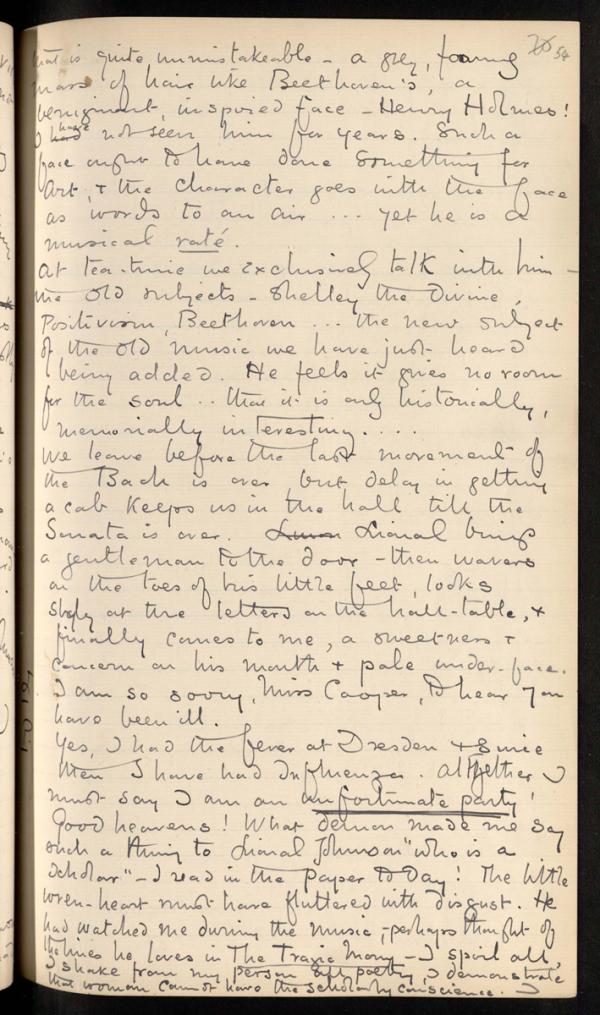 26 54
that is quite unmistakeable - a grey, foaming
mass of hair like Beethoven's, a
benignant, inspired face - Henry Holmes!
I had have not seen him for years. Such a
face ought to have done something for
Art, & the character goes with the face
as words to an air ... yet he is a
musical raté.
At tea-time we exclusively talk with him -
the old subjects - Shelley the Divine,
Positivism, Beethoven ... the new subject
of the old music we have just heard
being added. He feels it gives no room
for the soul .. that it is only historically,
memorially interesting. ...
We leave before the last movement of
the Bach is over, but delay in getting
a cab keeps us in the hall till the
Sonata is over. Lional brings
a gentleman to the door - then wavers
on the toes of his little feet, looks
shyly at the letters on the hall-table, &
finally comes to me, a sweetness &
concern on his mouth & pale under-face.
I am so sorry, Miss Cooper, to hear you
have been ill.
Yes, I had the fever at Dresden & since
then I have had Influenza. Altogether I
must say I am an unfortunate party!
Good heavens! What demon made me say
such a thing to Lional Johnson "who is a
Scholar" - I read in the paper to day! The little
wren-heart must have fluttered with disgust. He
had watched me during the music, - perhaps thought of
the lines he loves in The Tragic Mary - I spoil all,
I shake from my person all poetry, I demonstrate
that woman cannot have the scholarly conscience. I